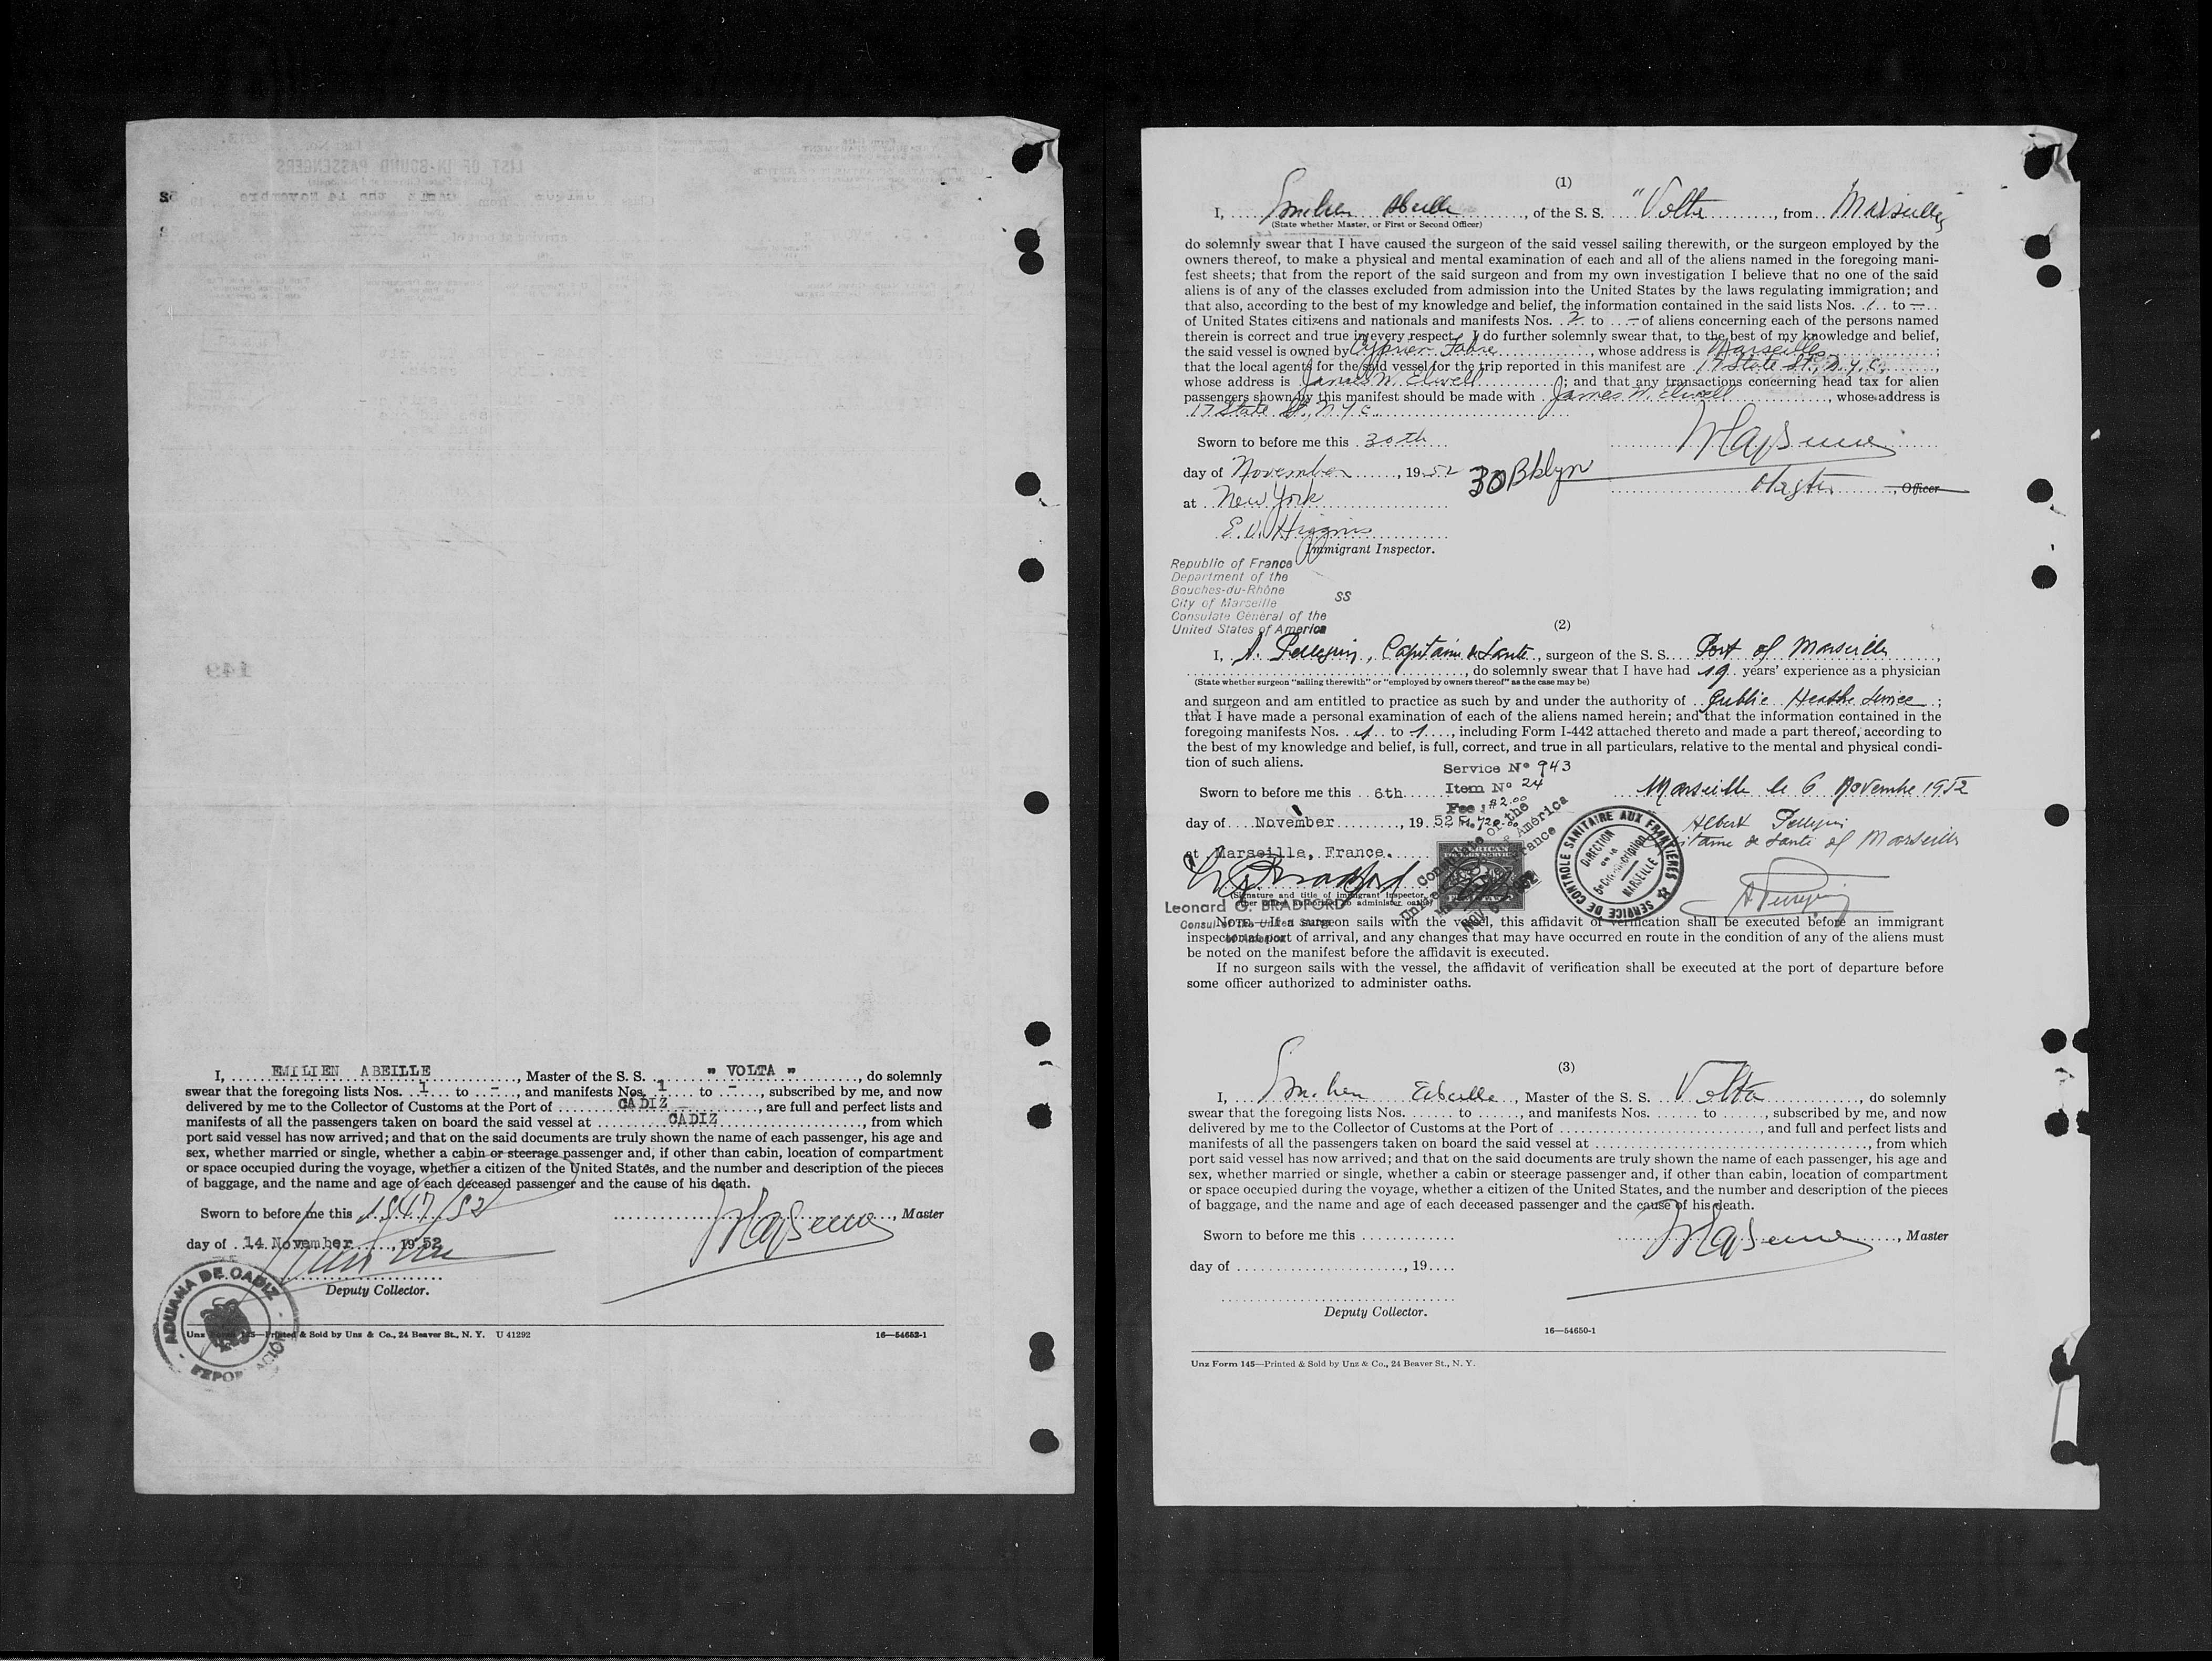 I, EMILIEN ABEILLE, Master of the S. S. " VOLTA ", do solemnly
swear that the foregoing lists Nos. 1 to -, and manifests Nos. 1 to -, subscribed by me, and now
delivered by me to the Collector of Customs at the Port of CADIZ, are full and perfect lists and
manifests of all the passengers taken on board the said vessel at CADIZ, from which
port said vessel has now arrived; and that on the said documents are truly shown the name of each passenger, his age and
sex, whether married or single, whether a cabin or steerage passenger and, if other than cabin, location of compartment
or space occupied during the voyage, whether a citizen of the United States, and the number and description of the pieces
of baggage, and the name and age of each deceased passenger and the cause of his death.
Sworn to before me this
, Master
day of 14 November, 1952
Deputy Collector.
ADUANA DE CADIZ
Unz Form 145—Printed & Sold by Unz & Co., 24 Beaver St., N. Y. U 41292
16—54652-1
(1)
I, Emilien Abeille, of the S. S. "Volta, from Marseille
(State whether Master, or First or Second Officer)
do solemnly swear that I have caused the surgeon of the said vessel sailing therewith, or the surgeon employed by the
owners thereof, to make a physical and mental examination of each and all of the aliens named in the foregoing mani-
fest sheets; that from the report of the said surgeon and from my own investigation I believe that no one of the said
aliens is of any of the classes excluded from admission into the United States by the laws regulating immigration; and
that also, according to the best of my knowledge and belief, the information contained in the said lists Nos. 1 to -
of United States citizens and nationals and manifests Nos. 2 to - of aliens concerning each of the persons named
therein is correct and true in every respect. I do further solemnly swear that, to the best of my knowledge and belief,
the said vessel is owned by Cyprien Fabre, whose address is Marseille;
that the local agents for the said vessel for the trip reported in this manifest are 17 State St., N.Y.C.,
whose address is James W. Elwell; and that any transactions concerning head tax for alien
passengers shown by this manifest should be made with James W. Elwell, whose address is
17 State St, N.Y.C.
Sworn to before me this 30th
day of November, 1952
30 Bklyn
Master, Officer
at New York
E. V. Higgins
Immigrant Inspector.
Republic of France
Department of the
Bouches-du-Rhône
City of Marseille
SS
Consulate Général of the
United States of America
(2)
I, A. Pellegrin, Capitaine de Santé, surgeon of the S. S. Port of Marseille,
, do solemnly swear that I have had 19 years' experience as a physician
(State whether surgeon "sailing therewith" or "employed by owners thereof" as the case may be)
and surgeon and am entitled to practice as such by and under the authority of Public Health Service;
that I have made a personal examination of each of the aliens named herein; and that the information contained in the
foregoing manifests Nos. 1 to 1, including Form I-442 attached thereto and made a part thereof, according to
the best of my knowledge and belief, is full, correct, and true in all particulars, relative to the mental and physical condi-
tion of such aliens.
Service Nº 943
Item Nº 24
Fee $2.00
Sworn to before me this 6th
Marseille le 6 Novembre 1952
day of November, 1952
Albert Pellegrin
Capitaine de Santé of Marseille
at Marseille, France.
SERVICE DE CONTROLE SANITAIRE AUX FRONTIERES
DIRECTION
de la
5e Circonscription
MARSEILLE
(Signature and title of immigrant inspector,
other officer authorized to administer oaths)
Leonard G. BRADFORD
Consul of the United States
of America
NOTE.—If a surgeon sails with the vessel, this affidavit of verification shall be executed before an immigrant
inspector at port of arrival, and any changes that may have occurred en route in the condition of any of the aliens must
be noted on the manifest before the affidavit is executed.
If no surgeon sails with the vessel, the affidavit of verification shall be executed at the port of departure before
some officer authorized to administer oaths.
(3)
I, Emilien Abeille, Master of the S. S. Volta, do solemnly
swear that the foregoing lists Nos. to , and manifests Nos. to , subscribed by me, and now
delivered by me to the Collector of Customs at the Port of , and full and perfect lists and
manifests of all the passengers taken on board the said vessel at , from which
port said vessel has now arrived; and that on the said documents are truly shown the name of each passenger, his age and
sex, whether married or single, whether a cabin or steerage passenger and, if other than cabin, location of compartment
or space occupied during the voyage, whether a citizen of the United States, and the number and description of the pieces
of baggage, and the name and age of each deceased passenger and the cause of his death.
Sworn to before me this
, Master
day of , 19
Deputy Collector.
16—54650-1
Unz Form 145—Printed & Sold by Unz & Co., 24 Beaver St., N. Y.